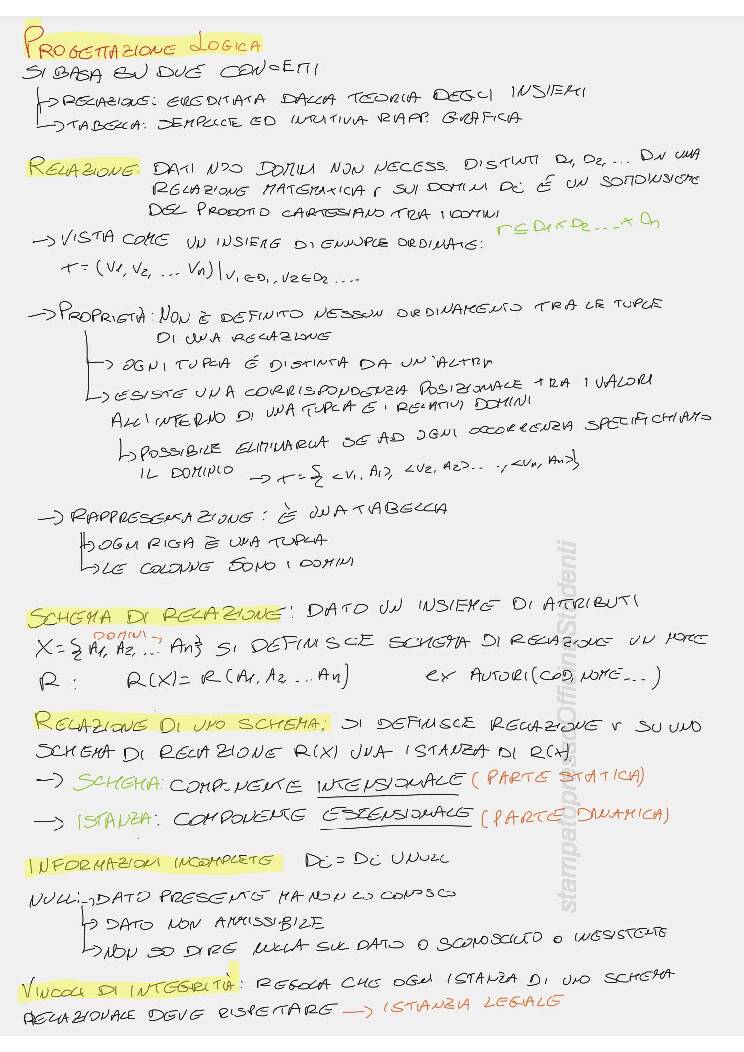 PROGETTAZIONE LOGICA
SI BASA SU DUE CONCETTI
↳ RELAZIONE: EREDITATA DALLA TEORIA DEGLI INSIEMI
↳ TABELLA: SEMPLICE ED INTUITIVA RAPP. GRAFICA
RELAZIONE: DATI N>0 DOMINI NON NECESS. DISTINTI D1, D2, ... DN UNA
RELAZIONE MATEMATICA r SUI DOMINI Di É UN SOTTOINSIEME
DEL PRODOTTO CARTESIANO TRA I DOMINI
r ⊆ D1 × D2 .... × Dn
→ VISTA COME UN INSIEME DI ENNUPLE ORDINATE:
t = (V1, V2, ... Vn) | V1 ∈ D1, V2 ∈ D2 ....
→ PROPRIETÀ: NON È DEFINITO NESSUN ORDINAMENTO TRA LE TUPLE
DI UNA RELAZIONE
→ OGNI TUPLA É DISTINTA DA UN'ALTRA
→ ESISTE UNA CORRISPONDENZA POSIZIONALE TRA I VALORI
ALL'INTERNO DI UNA TUPLA E I RELATIVI DOMINI
↳ POSSIBILE ELIMINARLA SE AD OGNI OCCORRENZA SPECIFICHIAMO
IL DOMINIO → t = { <V1, A1>, <V2, A2> ..., <Vn, An>}
→ RAPPRESENTAZIONE: È UNA TABELLA
↳ OGNI RIGA È UNA TUPLA
↳ LE COLONNE SONO I DOMINI
SCHEMA DI RELAZIONE: DATO UN INSIEME DI ATTRIBUTI
DOMINI →
X = { A1, A2, ... An} SI DEFINISCE SCHEMA DI RELAZIONE UN NOME
R: R(X) = R(A1, A2 ... An) ex AUTORI(COD, NOME...)
RELAZIONE DI UNO SCHEMA: SI DEFINISCE RELAZIONE r SU UNO
SCHEMA DI RELAZIONE R(X) UNA ISTANZA DI R(X)
→ SCHEMA: COMPONENTE INTENSIONALE (PARTE STATICA)
→ ISTANZA: COMPONENTE ESTENSIONALE (PARTE DINAMICA)
INFORMAZIONI INCOMPLETE Di = Di U NULL
NULL: → DATO PRESENTE MA NON LO CONOSCO
↳ DATO NON AMMISSIBILE
↳ NON SO DIRE NULLA SUL DATO O SCONOSCIUTO O INESISTENTE
VINCOLI DI INTEGRITÀ: REGOLA CHE OGNI ISTANZA DI UNO SCHEMA
RELAZIONALE DEVE RISPETTARE → ISTANZA LEGALE
stampatopressoOfficineStudenti